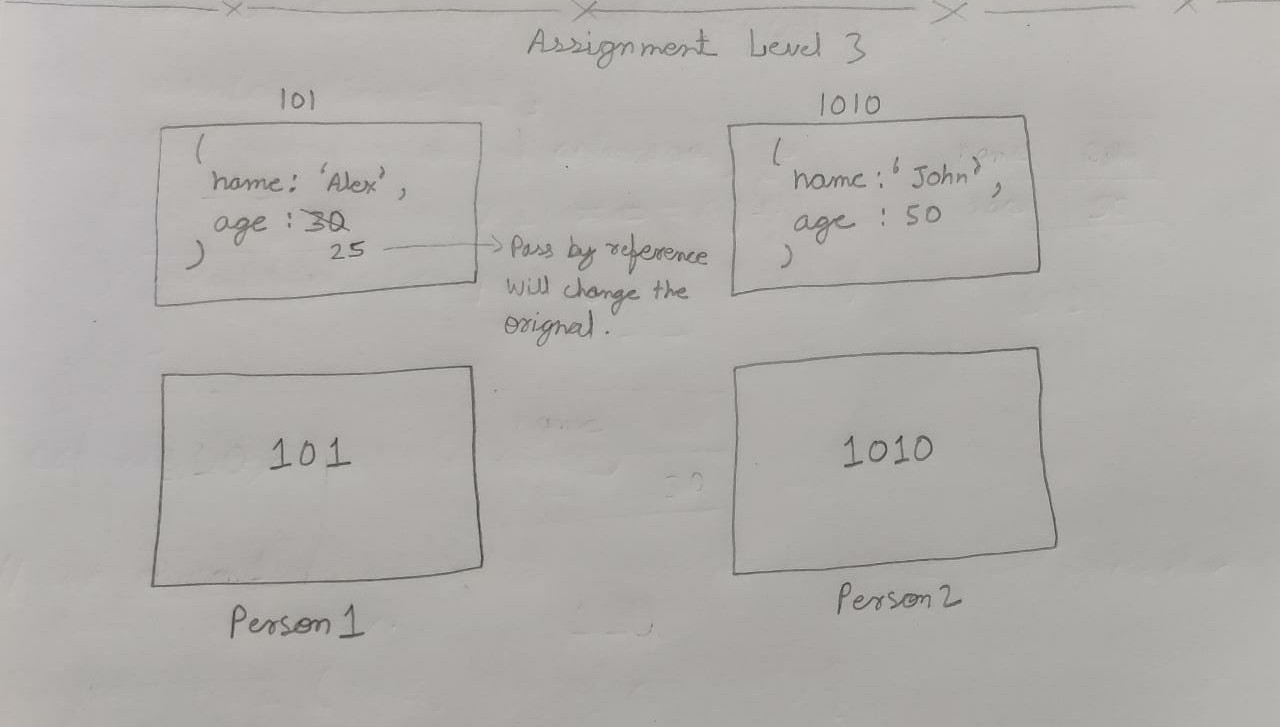 Assignment Level 3
101
{
name: 'Alex',
age : 30
25
}
Pass by reference
will change the
orignal.
1010
{
name: 'John',
age : 50
}
101
Person 1
1010
Person 2